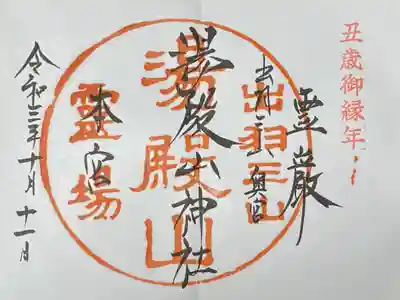 丑歳御縁年
霊厳
出羽三山奥宮
湯殿山神社
本宮
令和三年十月十一日
出羽三山
湯殿山
靈場